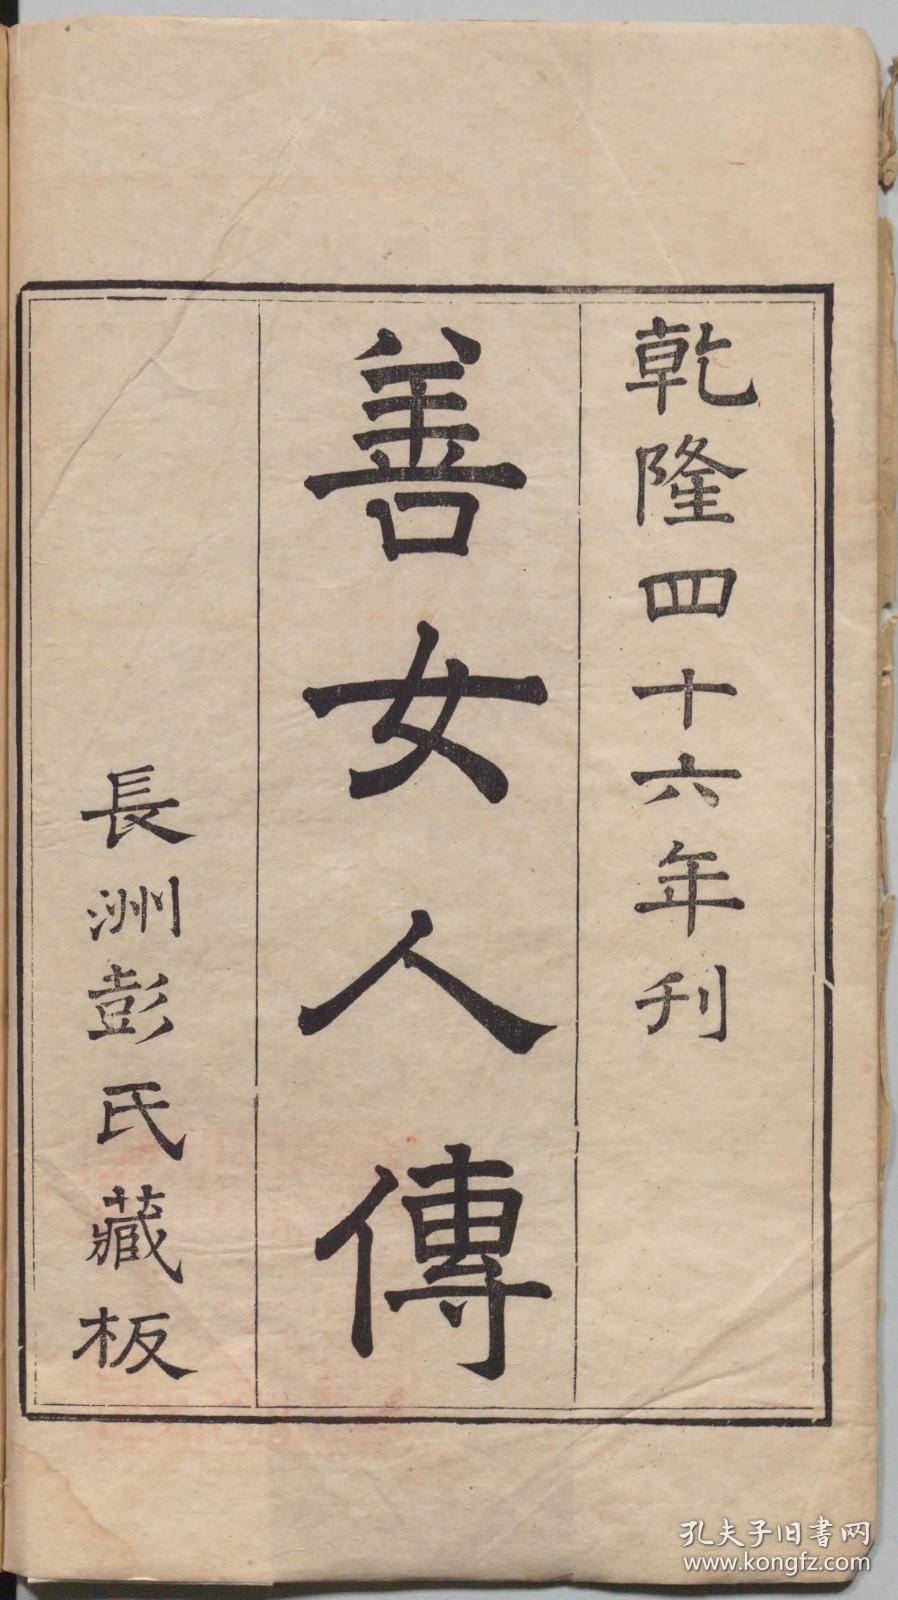 乾隆四十六年刊
善女人傳
長洲彭氏藏板
孔夫子旧書网
www.kongfz.com